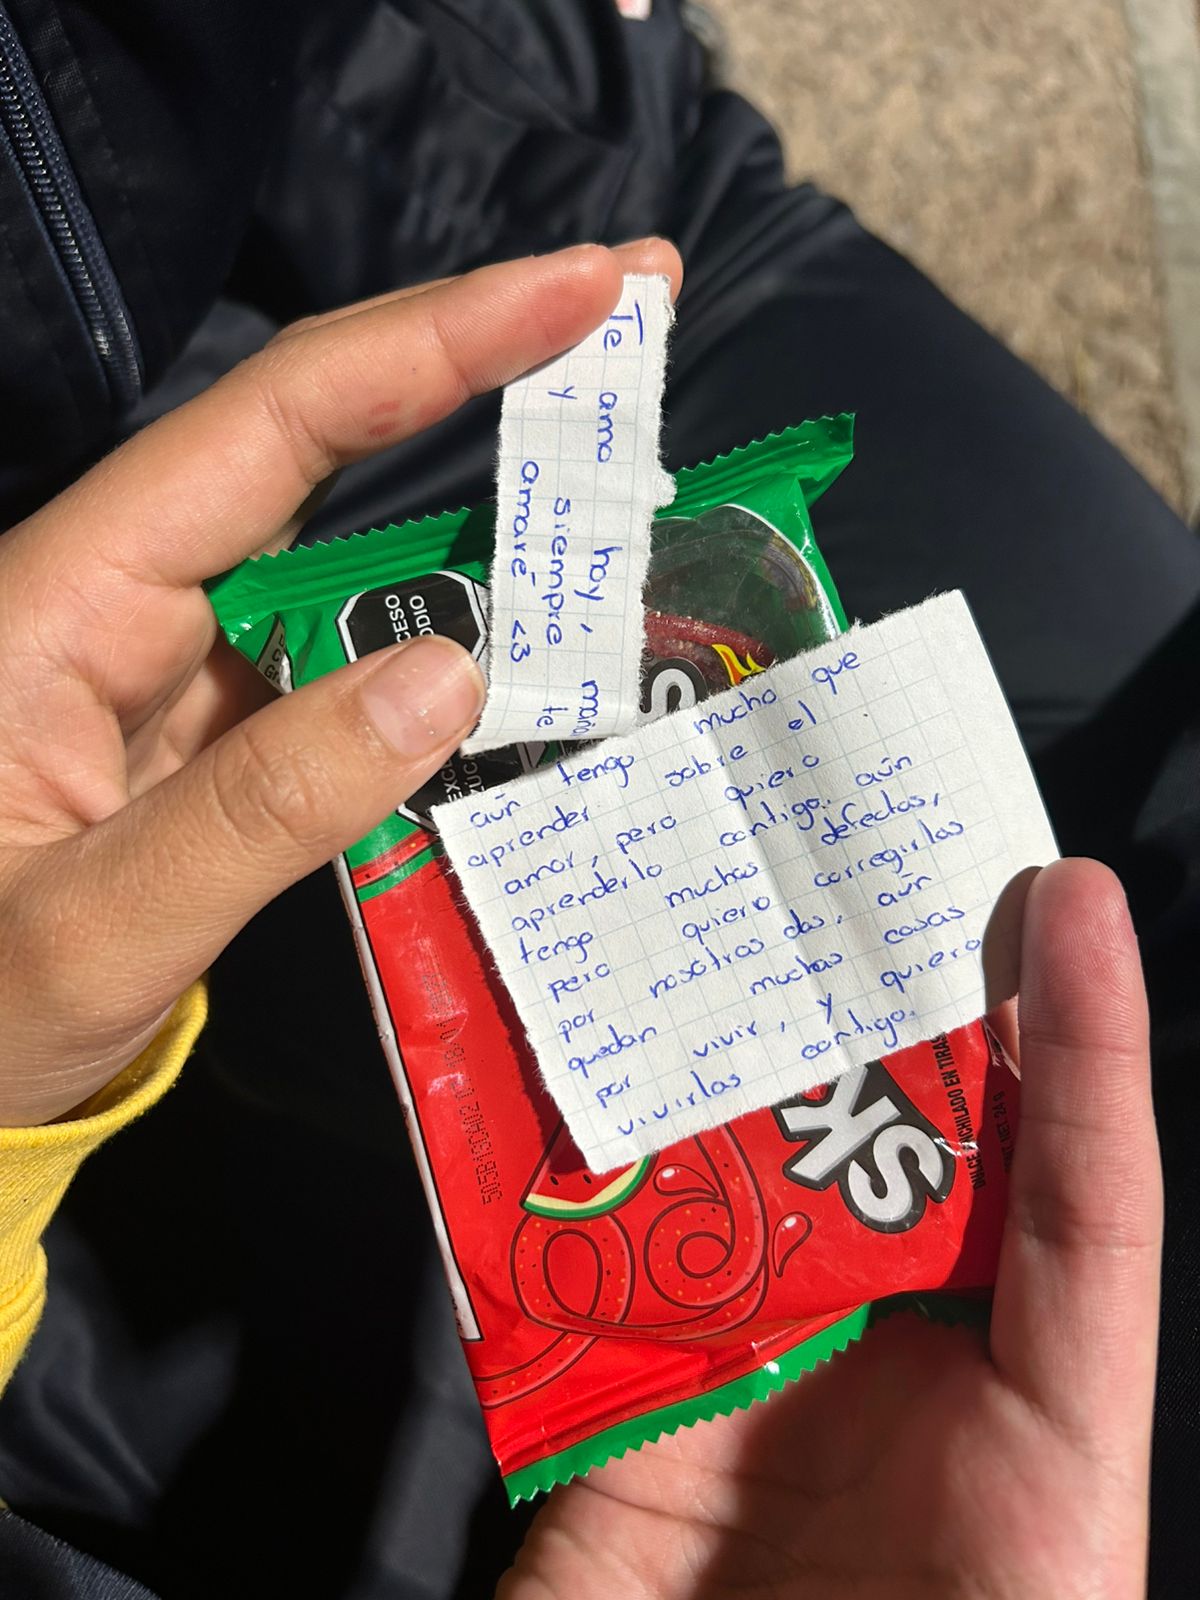 Te amo hoy, maña
y siempre te
amaré <3
aún tengo mucho que
aprender sobre el
amor, pero quiero
aprenderlo contigo. aún
tengo muchos defectos,
pero quiero corregirlos
por nosotros dos, aún
quedan muchas cosas
por vivir, y quiero
vivirlas contigo.
CESO
ODIO
EXC
ZUCA
SKS
DULCE ENCHILADO EN TIRAS